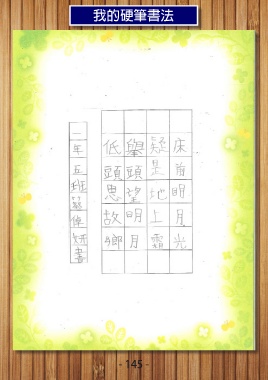 我的硬筆書法
床前明月光
疑是地上霜
舉頭望明月
低頭思故鄉
二年五班
書
- 145 -